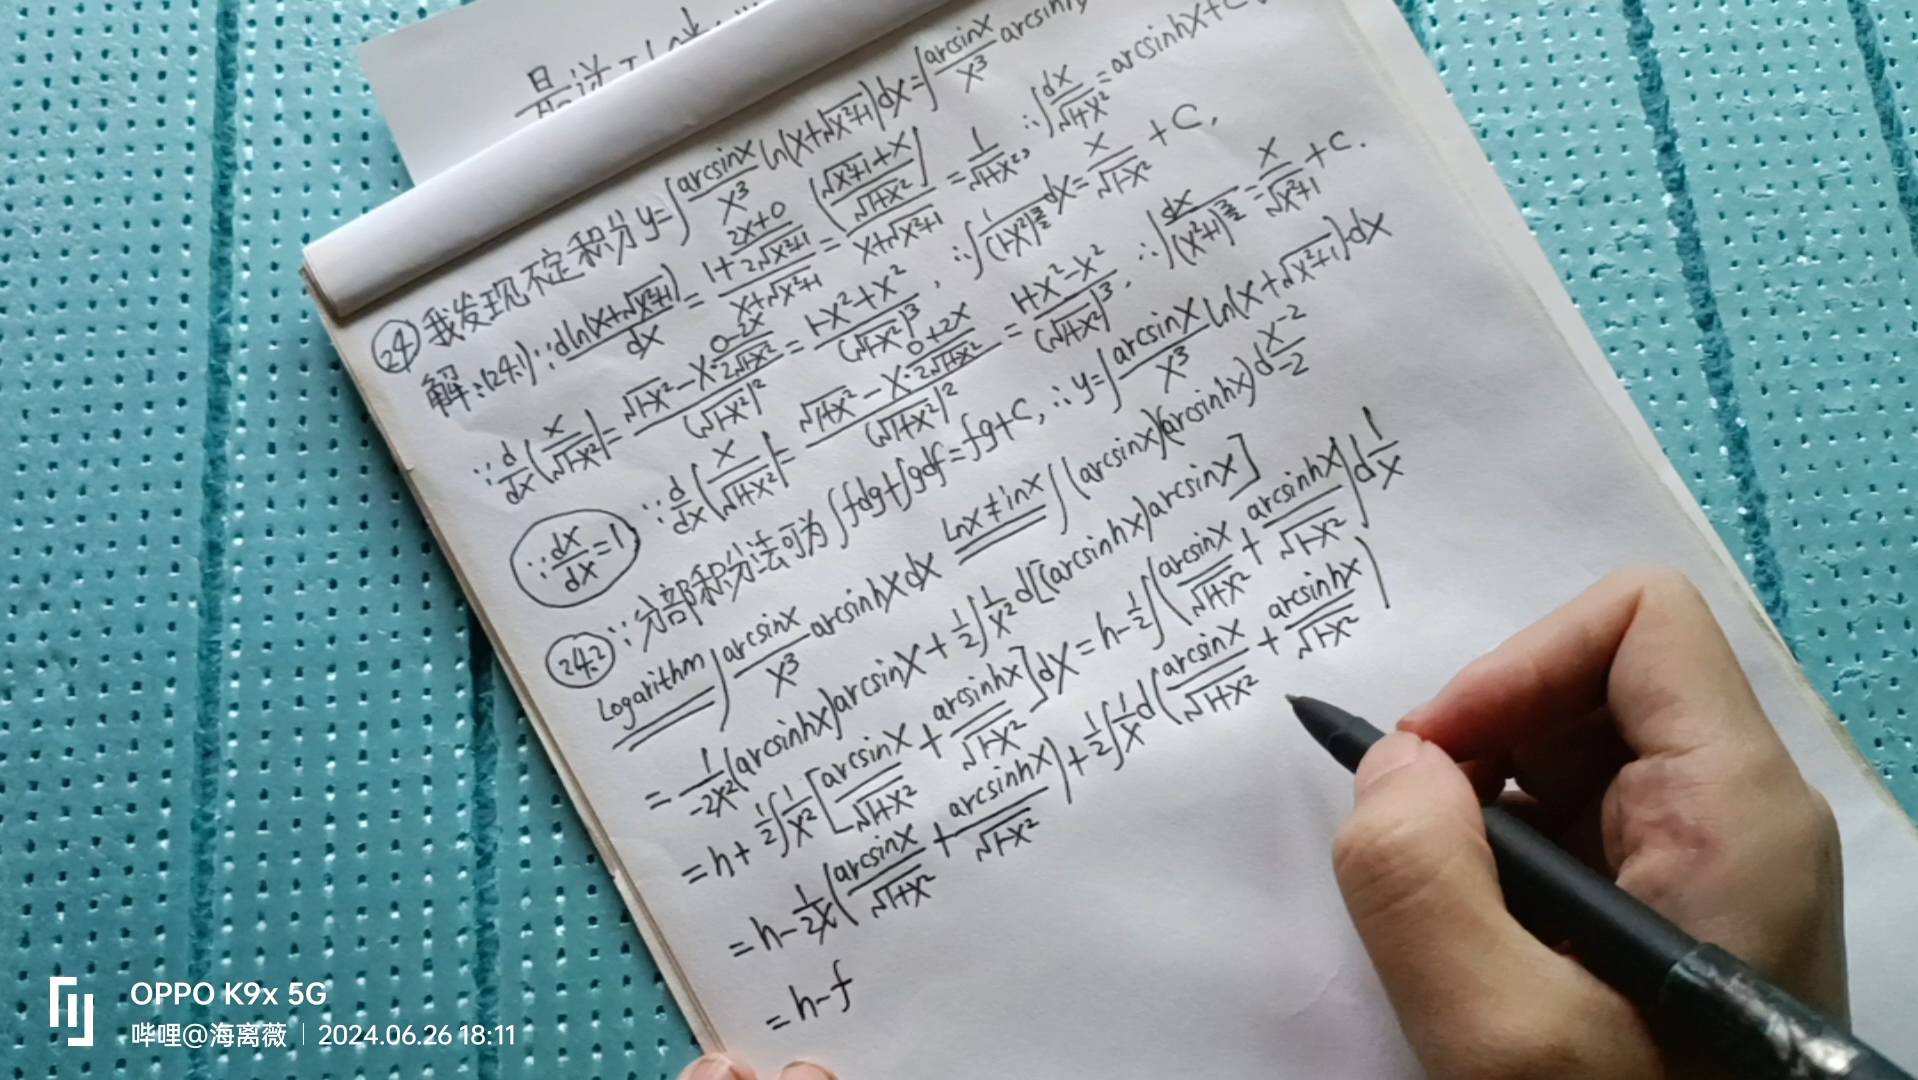 ㉔我发现不定积分y=∫(arcsinx/x³)ln(x+√(x²+1))dx=∫(arcsinx/x³)
解:(24.1)∵dln(x+√(x²+1))/dx=(1+(2x+0)/(2√(x²+1)))/(x+√(x²+1))=((√(x²+1)+x)/√(1+x²))/(x+√(x²+1))=1/√(1+x²),∴∫dx/√(1+x²)=arcsinhx+C
∵d/dx(x/√(1-x²))=(√(1-x²)-x·(0-2x)/(2√(1-x²)))/(√(1-x²))²=(1-x²+x²)/(√(1-x²))³,∴∫1/(1-x²)^(3/2)dx=x/√(1-x²)+C,
∵dx/dx=1
∵d/dx(x/√(1+x²))=(√(1+x²)-x·(0+2x)/(2√(1+x²)))/(√(1+x²))²=(1+x²-x²)/(√(1+x²))³,∴∫dx/(x²+1)^(3/2)=x/√(x²+1)+C.
(24.2)∵分部积分法可为∫fdg+∫gdf=fg+C,∴y=∫(arcsinx/x³)ln(x+√(x²+1))dx
Logarithm∫(arcsinx/x³)arcsinhxdx lnx≠inx∫(arcsinx)(arcsinhx)d(x⁻²/-2)
=1/(-2x²)(arcsinhx)arcsinx+1/2∫1/x²d[(arcsinhx)arcsinx]
=h+1/2∫1/x²[arcsinx/√(1+x²)+arcsinhx/√(1-x²)]dx=h-1/2∫(arcsinx/√(1+x²)+arcsinhx/√(1-x²))d1/x
=h-1/2x(arcsinx/√(1+x²)+arcsinhx/√(1-x²))+1/2∫1/xd(arcsinx/√(1+x²)+arcsinhx/√(1-x²))
=h-f
OPPO K9x 5G
哔哩@海离薇 | 2024.06.26 18:11